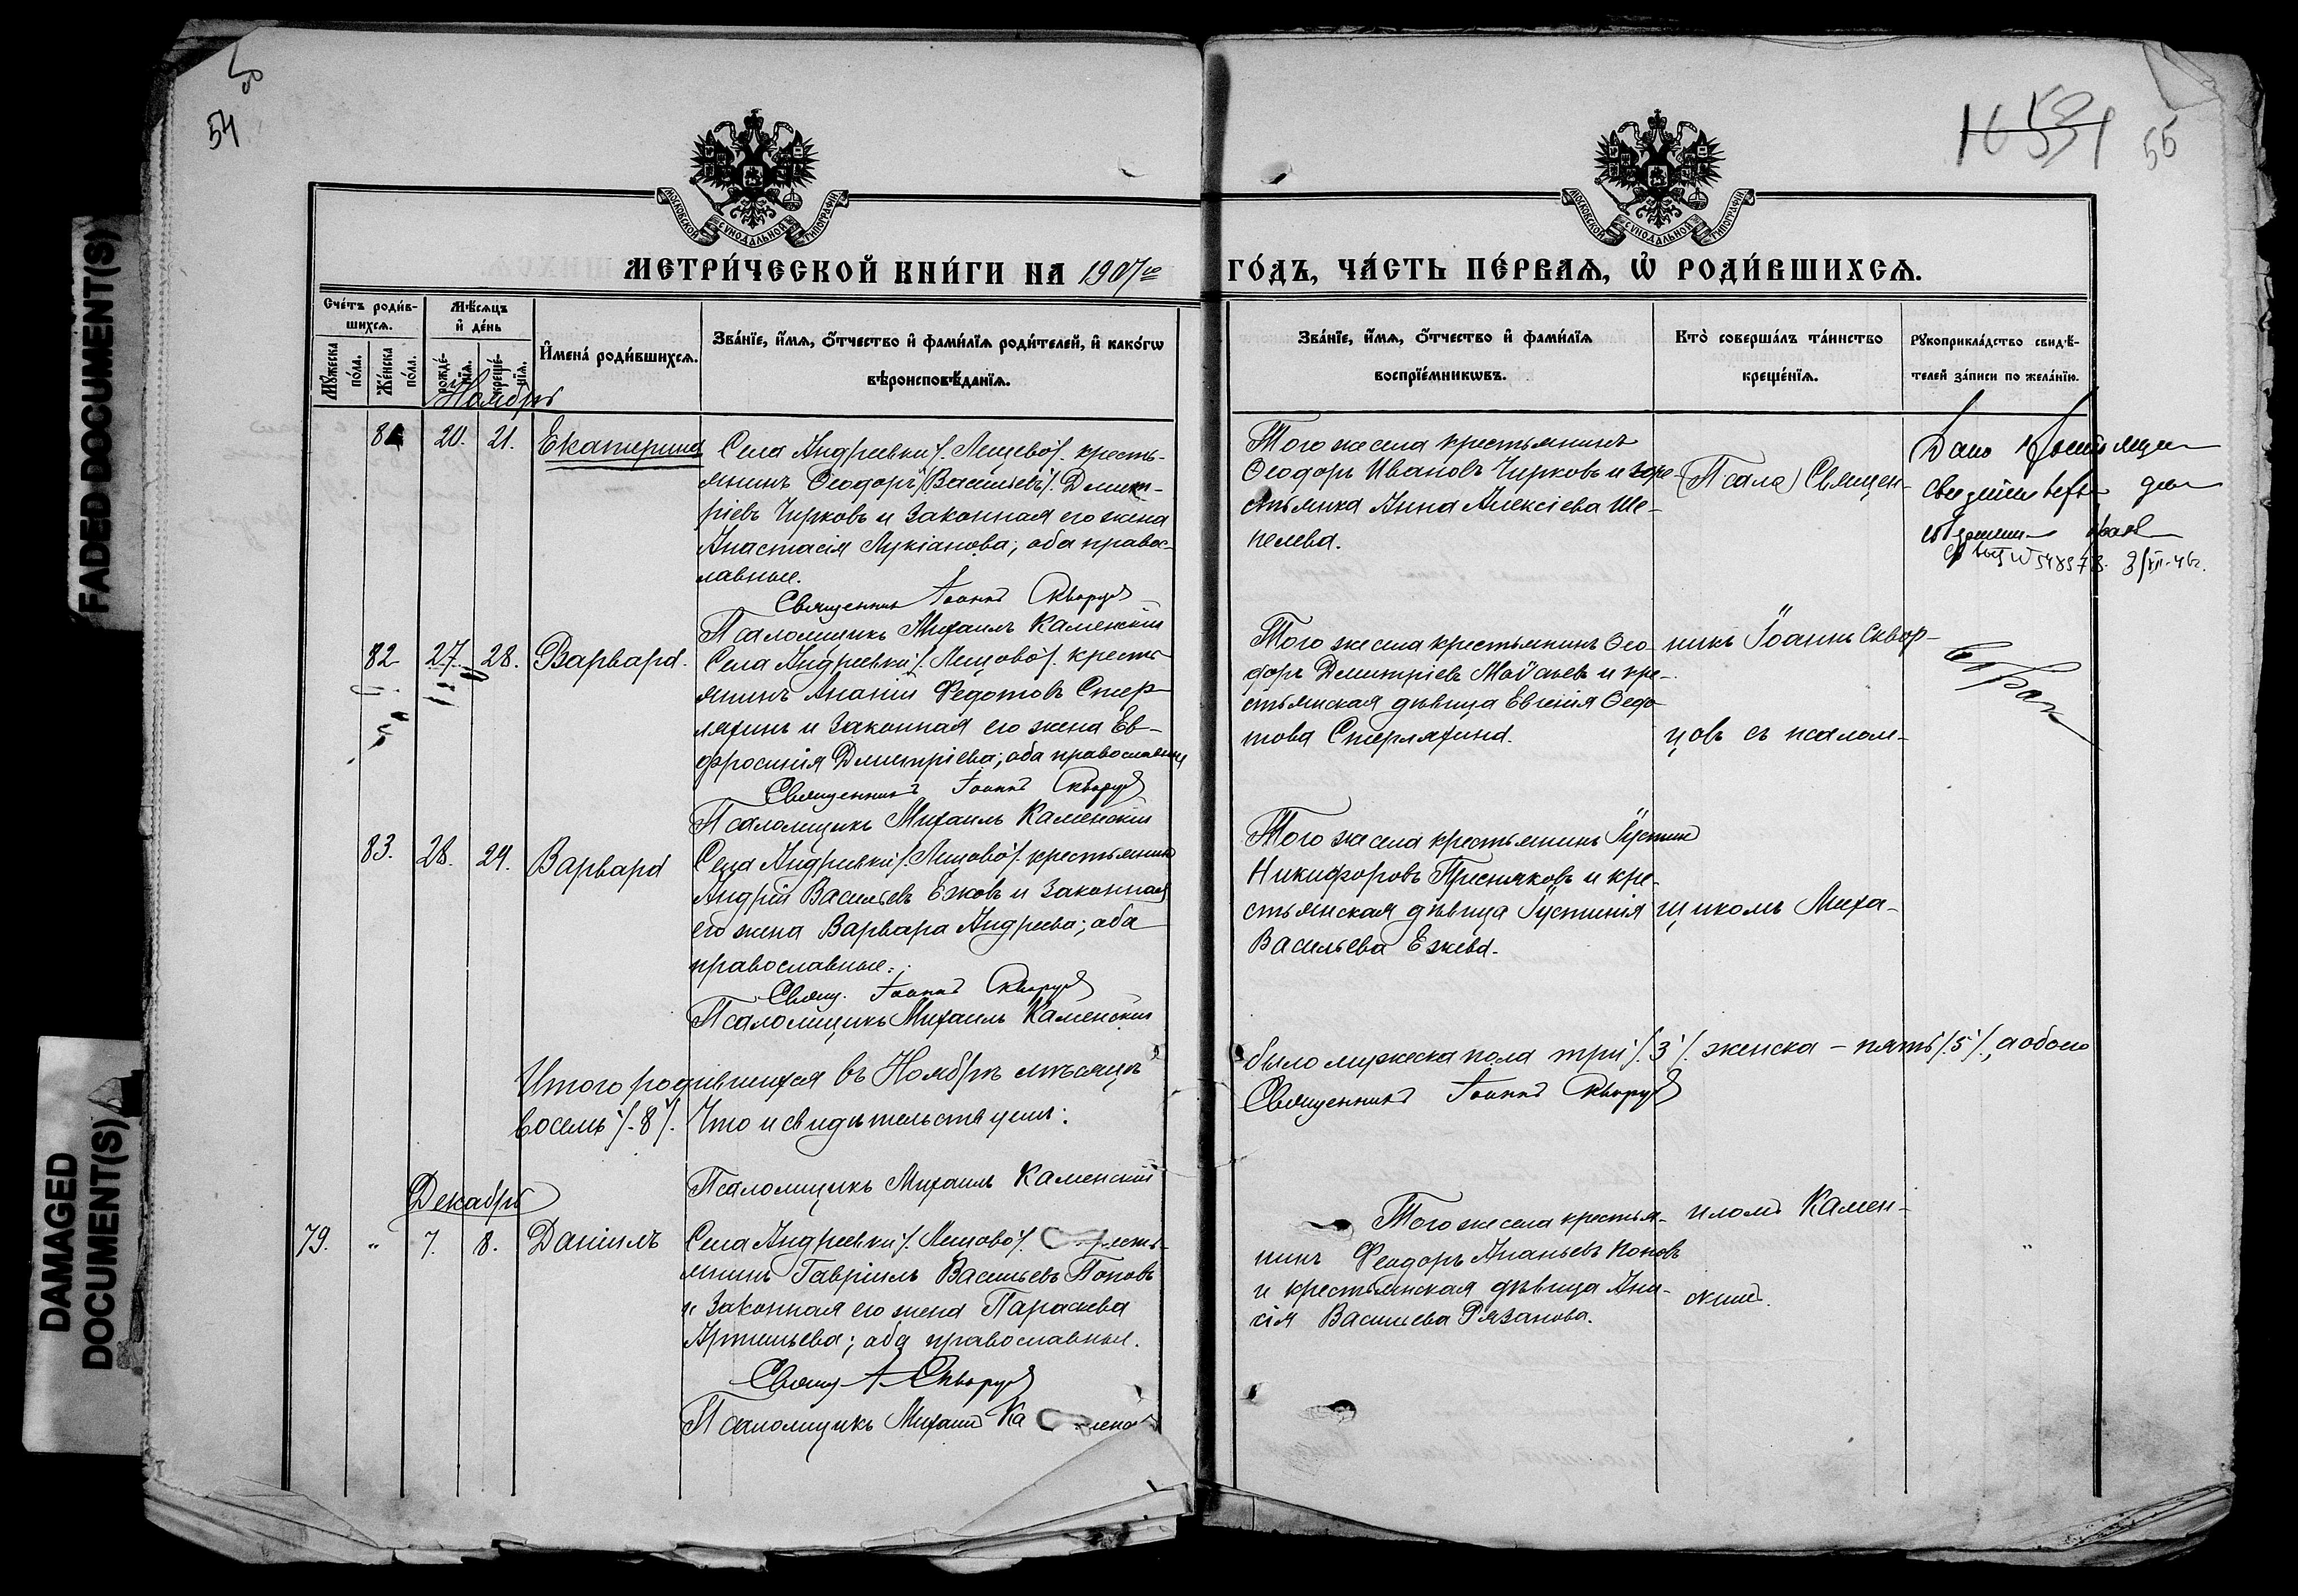 54
55
FADED DOCUMENT(S)
DAMAGED
DOCUMENT(S)
МОСКОВСКОЙ СѴНОДАЛЬНОЙ ТИПОГРАФІИ
МОСКОВСКОЙ СѴНОДАЛЬНОЙ ТИПОГРАФІИ
МЕТРИ́ЧЕСКОЙ КНИ́ГИ НА 1907 го
ГО́ДЪ, ЧА́СТЬ ПЕ́РВАѦ, Ѡ҆ РОДИ́ВШИХСѦ.
Сче́тъ роди́в-
шихсѧ.
Мꙋ́жеска
по́ла.
Же́нска
по́ла.
Мѣ́сѧцъ
и҆ де́нь
рожде́-
нїѧ.
креще́-
нїѧ.
И҆мена́ роди́вшихсѧ.
Зва́нїе, и҆́мѧ, о҆́тчество и҆ фами́лїѧ роди́телей, и҆ како́гѡ
вѣроисповѣ́данїѧ.
Зва́нїе, и҆́мѧ, о҆́тчество и҆ фами́лїѧ
воспрїе́мникѡвъ.
Кто̀ соверша́лъ та́инство
креще́нїѧ.
Рꙋкоприкла́дство свидѣ́-
телей за́писи по жела́нїю.
Ноябрь
81 20. 21. Екатерина
Села Андреевки /. Лещево /. кресть-
янинъ Ѳеодоръ /Васильевъ/. Димит-
ріевъ Чирковъ и законная его жена
Анастасія Лукіанова; оба правос-
лавные.
Священникъ Іоаннъ Скворцовъ
Псаломщикъ Михаилъ Каменскій
Того же села крестьянинъ
Ѳеодоръ Ивановъ Чирковъ и кре-
стьянка Анна Алексіева Ше-
пелева.
(Псала) Священ-
Дано
82 27. 28. Варвара.
Села Андреевки /. Лещово /. кресть
янинъ Ананій Федотовъ Стер-
ляхинъ и законная его жена Ев-
фросинія Димитріева; оба православные
Священникъ Іоаннъ Скворцовъ
Псаломщикъ Михаилъ Каменскій
Того же села крестьянинъ Ѳео-
доръ Димитріевъ Моисѣевъ и кре-
стьянская дѣвица Евгенія Ѳедо
това Стерляхина.
никъ Іоаннъ Сквор-
цовъ съ псалом-
брак
83. 28. 29. Варвара
Села Андреевки /. Лещово /. крестьянинъ
Андрей Васильевъ Ежовъ и законная
его жена Варвара Андреева; оба
православные.
Свящ. Іоаннъ Скворцовъ
Псаломщикъ Михаилъ Каменскій
Того же села крестьянинъ Іустинъ
Никифоровъ Пресняковъ и кре-
стьянская дѣвица Іустинія
Васильева Ежева.
щикомъ Миха-
Итого родившихся въ Ноябрѣ мѣсяцѣ
было мужеска пола три /. 3 /. женска - пять /. 5 /., а обоего
восемь /. 8 /. Что и свидѣтельствуемъ:
Священникъ Іоаннъ Скворцовъ
Псаломщикъ Михаилъ Каменскій
Декабрь
79. " 7. 8. Даніилъ
Села Андреевки /. Лещово /. кресть-
янинъ Гавріилъ Васильевъ Поповъ
и законная его жена Параскева
Артемьева; оба православные.
Свящ І Скворцовъ
Псаломщикъ Михаилъ Каменскій
Того же села крестья-
нинъ Феодоръ Ананьевъ Поповъ
и крестьянская дѣвица Ана-
сія Васильева Рязанова.
иломъ Камен-
скимъ.
"